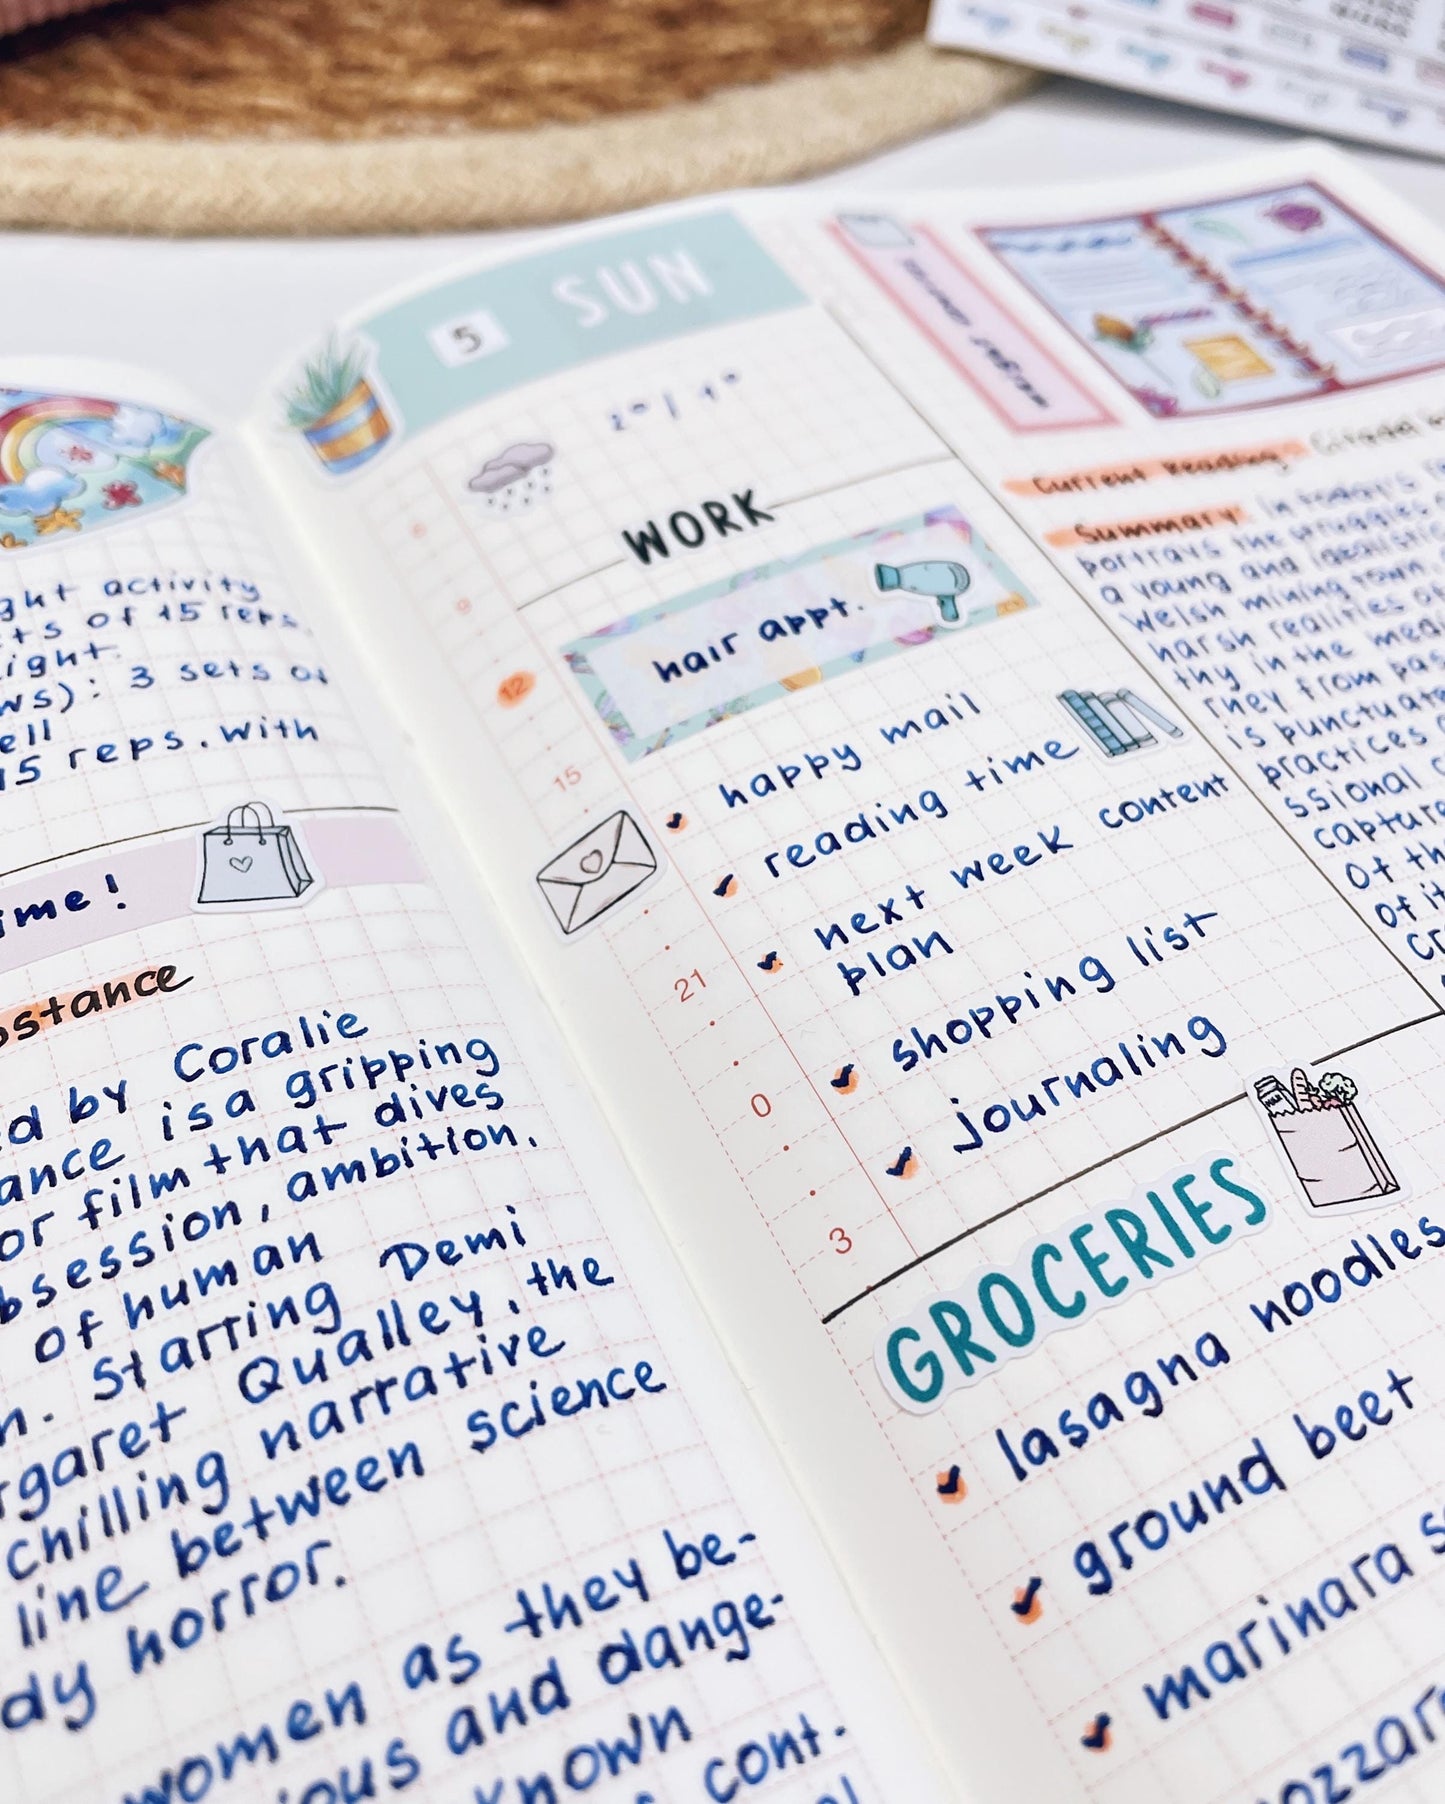 activity
of 15 reps.
3 sets of
15 reps. with
ime!
bstance
ed by Coralie
ance is a gripping
or film that dives
bsession, ambition,
of human
Starring Demi
rgaret Qualley, the
chilling narrative
line between science
dy horror.
women as they be-
ious and dange-
known
cont.
5 SUN
WORK
hair appt.
happy mail
reading time
next week content
plan
shopping list
journaling
9
12
15
21
0
3
GROCERIES
lasagna noodles
ground beet
marinara s
ozzar
Current Reading: Citadel
Summary: In today's
portrays the struggles
a young and idealistic
Welsh mining town.
harsh realities
thy in the med
rney from pas
is punctuat
practices
ssional
capture
of th
of it